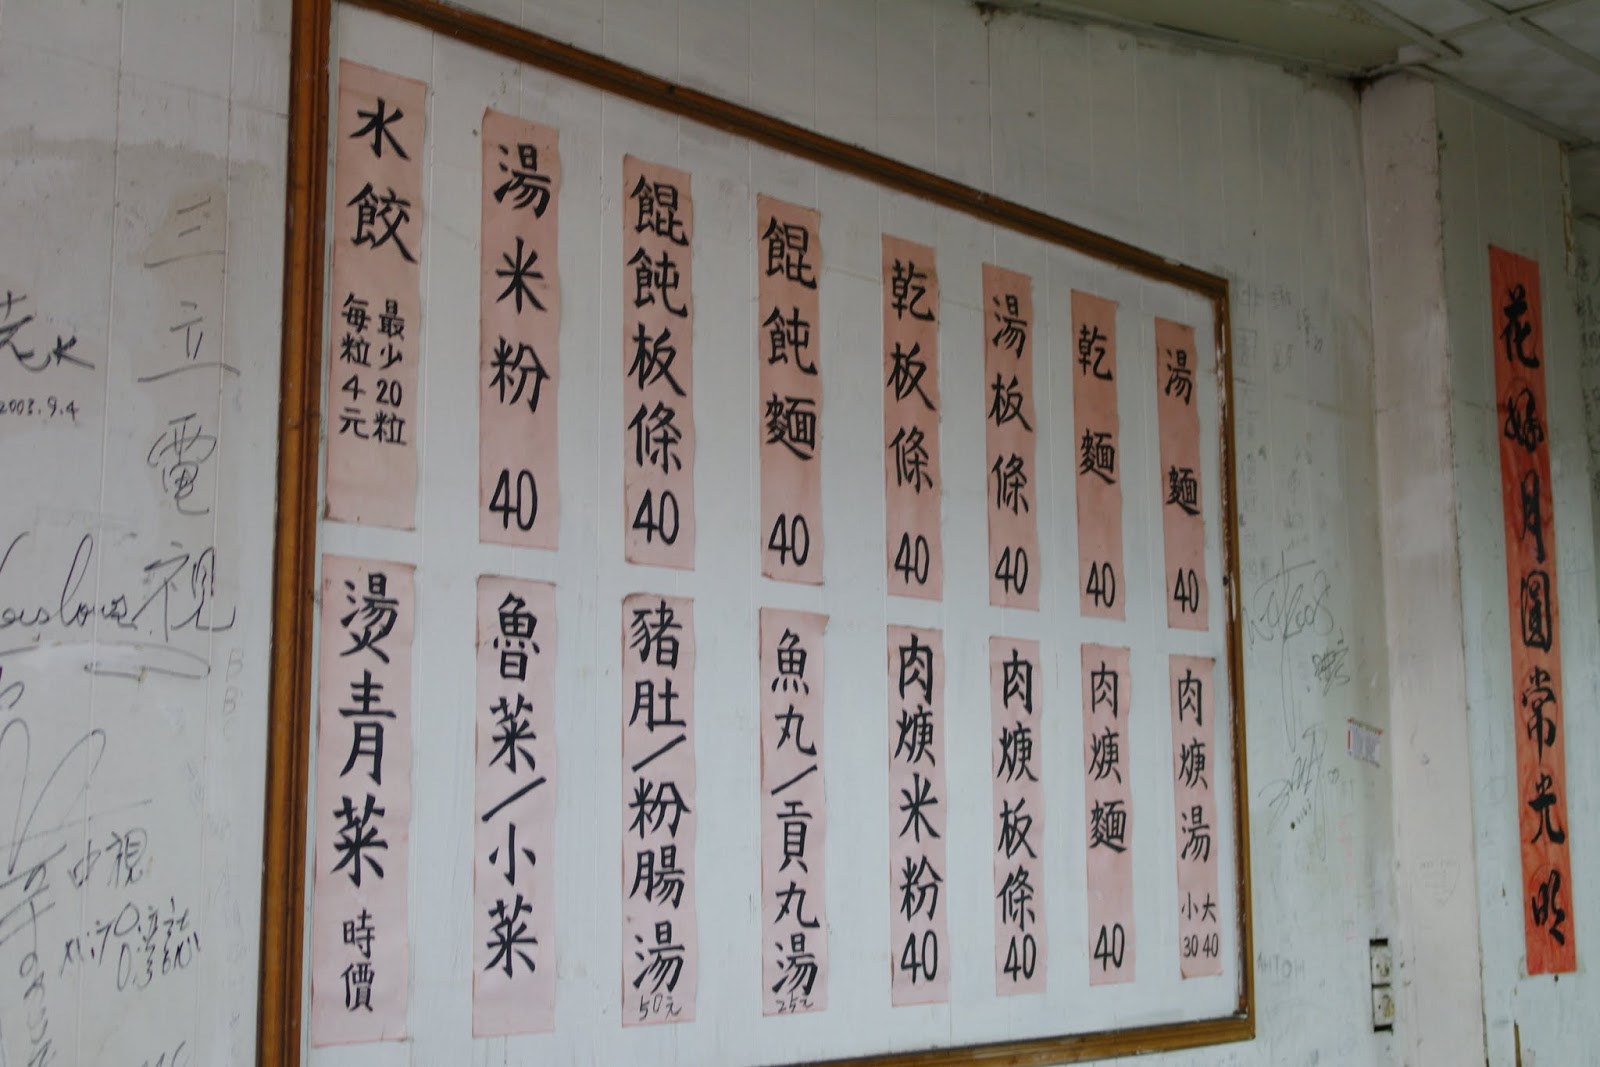 湯麵 40
乾麵 40
湯板條 40
乾板條 40
餛飩麵 40
餛飩板條 40
湯米粉 40
水餃 最少20粒 每粒4元
肉焿湯 大40 小30
肉焿麵 40
肉焿板條 40
肉焿米粉 40
魚丸/貢丸湯 25元
豬肚/粉腸湯 50元
魯菜/小菜
燙青菜 時價
花好月圓常光明
三立電視
2003.9.4
中視